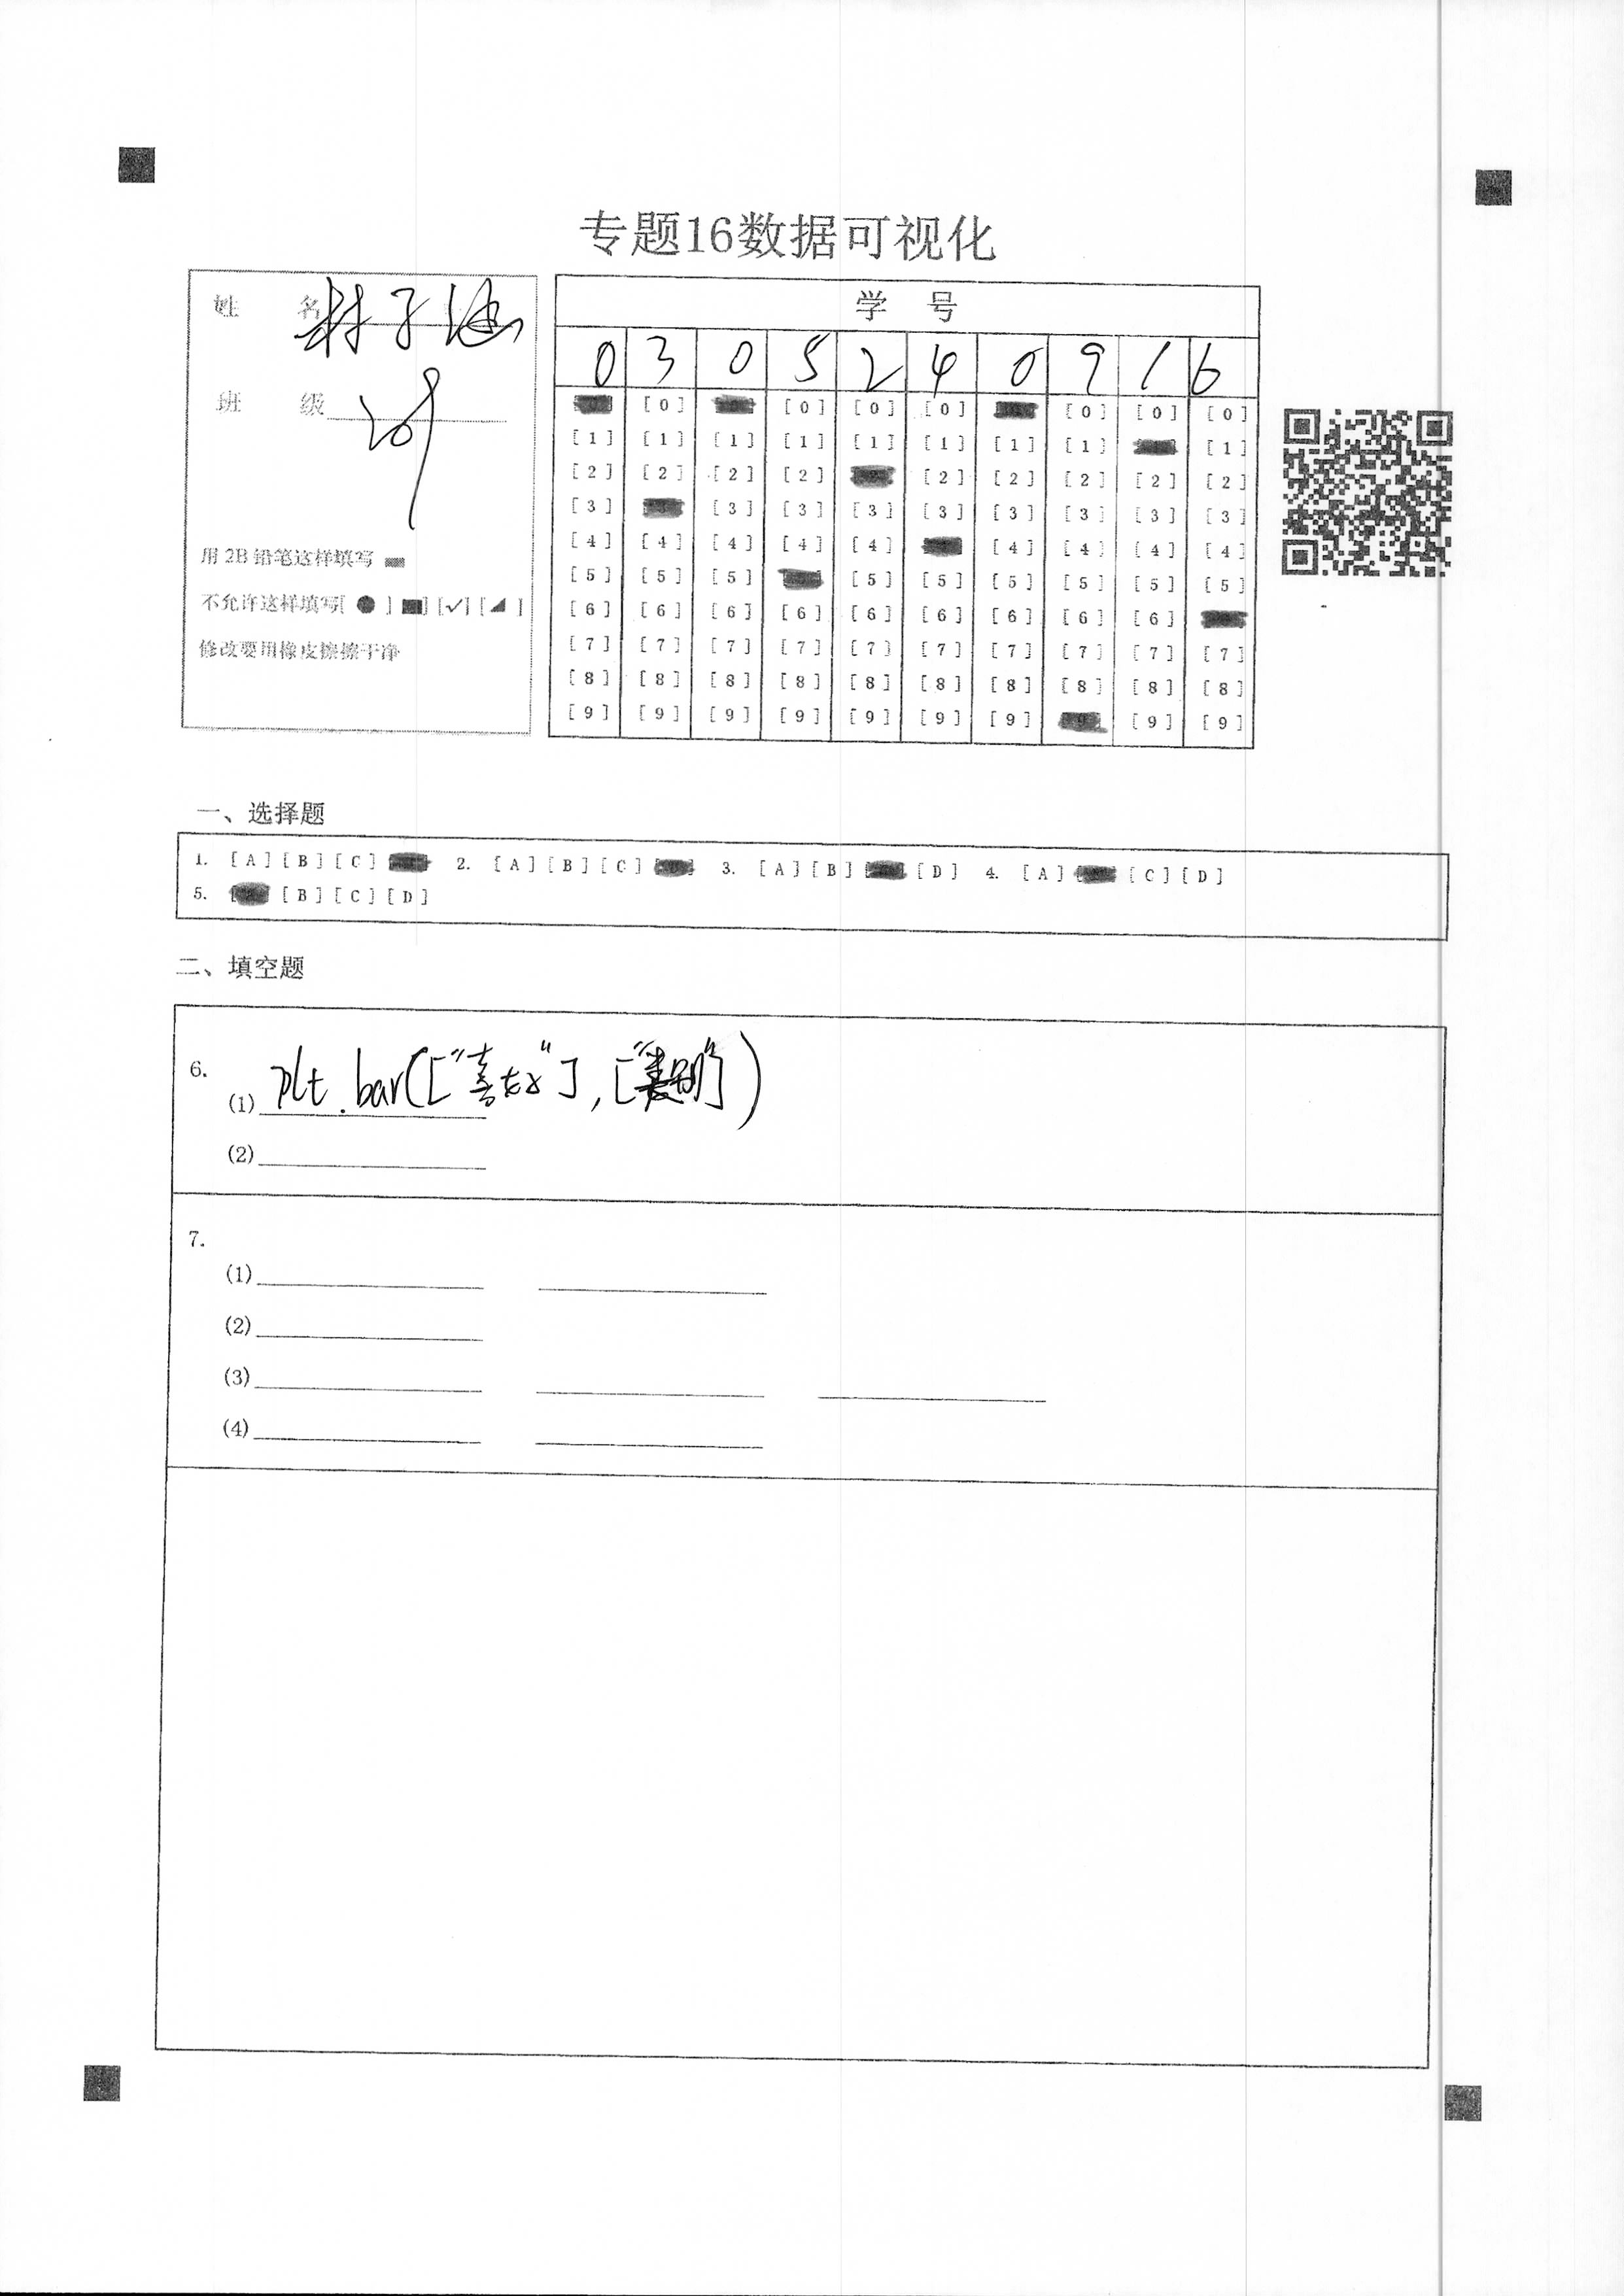 专题16数据可视化
姓 名 林子涵
班 级 209
用 2B 铅笔这样填写
不允许这样填写[ ● ] ■] [✓] [◢ ]
修改要用橡皮擦擦干净
学 号
0 3 0 5 2 4 0 9 1 6
[0] [0] [0] [0] [0] [0] [0]
[1] [1] [1] [1] [1] [1] [1] [1] [1]
[2] [2] [2] [2] [2] [2] [2] [2] [2]
[3] [3] [3] [3] [3] [3] [3] [3] [3]
[4] [4] [4] [4] [4] [4] [4] [4] [4]
[5] [5] [5] [5] [5] [5] [5] [5] [5]
[6] [6] [6] [6] [6] [6] [6] [6] [6]
[7] [7] [7] [7] [7] [7] [7] [7] [7] [7]
[8] [8] [8] [8] [8] [8] [8] [8] [8] [8]
[9] [9] [9] [9] [9] [9] [9] [9] [9]
一、选择题
1. [A] [B] [C] 2. [A] [B] [C] 3. [A] [B] [D] 4. [A] [C] [D]
5. [B] [C] [D]
二、填空题
6.
(1) plt.bar(["喜好"],["类别"])
(2)
7.
(1)
(2)
(3)
(4)